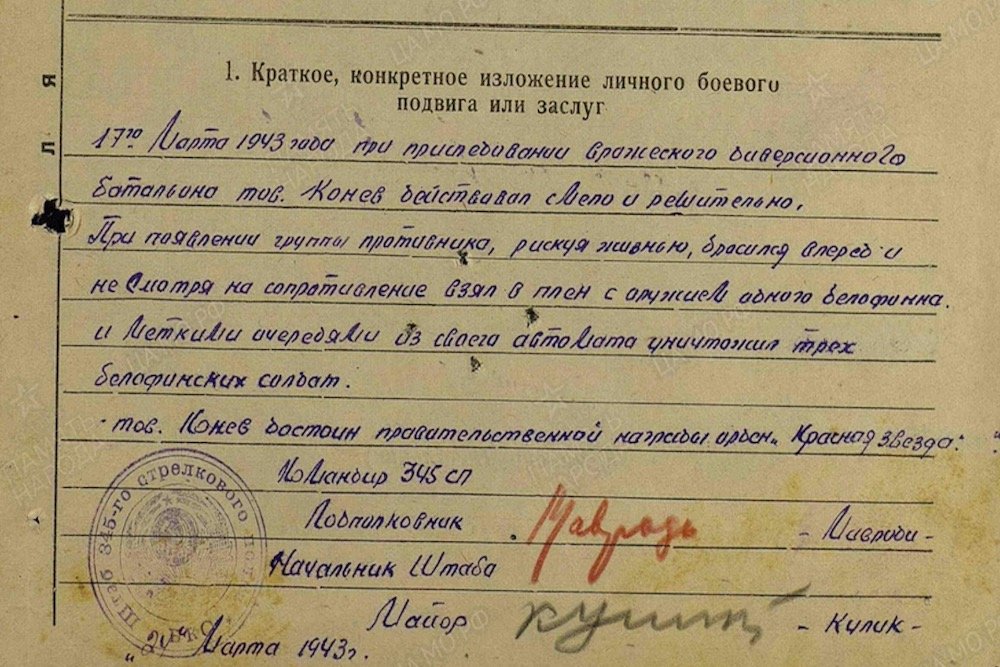 л я
1. Краткое, конкретное изложение личного боевого
подвига или заслуг
17го Марта 1943 года при приследывании вражеского диверсионного
батальона тов. Конев действовал смело и решительно.
При появлении группы противника, рискуя жизнью, бросился вперед и
не смотря на сопротивление взял в плен с оружием одного белофинна.
и меткими очередями из своего автомата уничтожил трех
белофинских солдат.
тов. Конев достоин правительственной награды орден „Красная звезда".
Командир 345 сп
Подполковник Мавроди - Мавроди -
Начальник Штаба
Майор Кулик - Кулик -
„20" Марта 1943 г.
Штаб 345-го стрелкового полка
НКО
ЦАМО РФ
ПАМЯТЬ НАРОДА